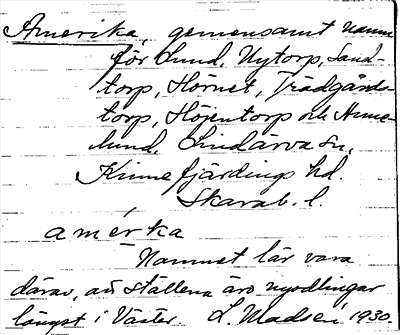 Amerika, gemensamt namn
för Lund, Nytorp, Sand-
torp, Hörnet, Trädgårds-
torp, Höjentorp och Anne-
lund, Lindärva sn,
Kinnefjärdings hd.
Skarab. l.
amérka
Namnet lär vara
därav, att ställena äro nyodlingar
längst i Väster. L. Madsén 1930.